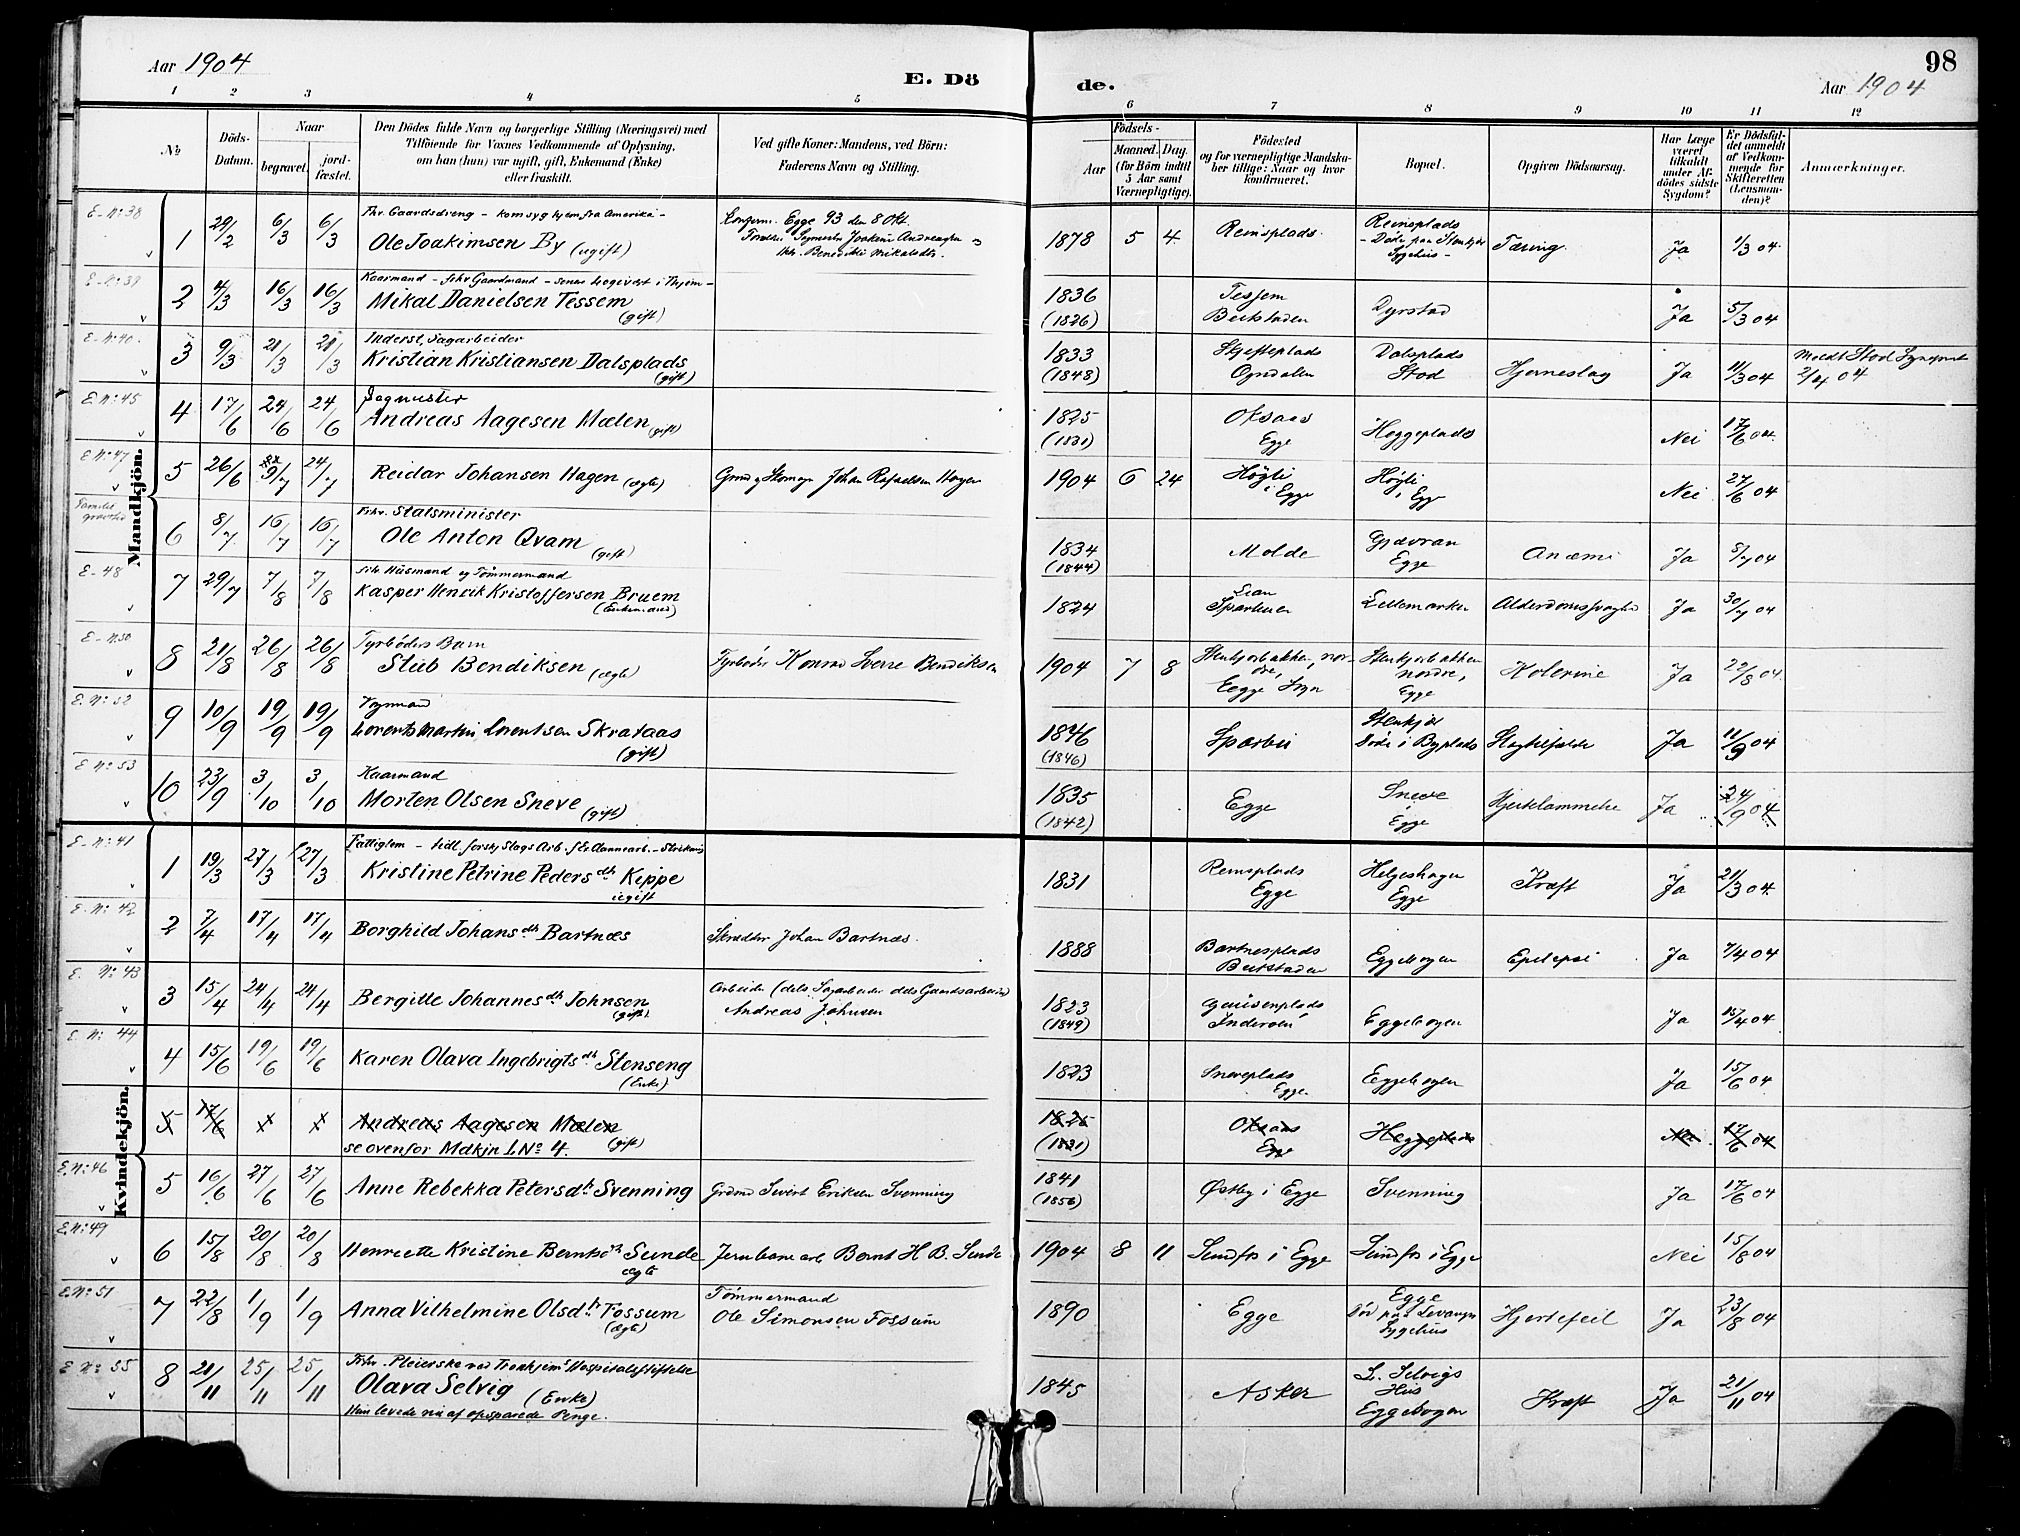 Aar 1904
E. Dö
de.
98
Aar 1904
1 2 3 4 5 6 7 8 9 10 11 12
No
Döds-Datum.
Naar
begravet.
jord-fæstet.
Den Dödes fulde Navn og borgerlige Stilling (Næringsvei) med
Tilföiende for Voxnes Vedkommende af Oplysning,
om han (hun) var ugift, gift, Enkemand (Enke)
eller fraskilt.
Ved gifte Koner: Mandens, ved Börn:
Faderens Navn og Stilling.
Födsels-
Aar
Maaned. Dag.
(for Börn indtil
5 Aar samt
Værnepligtige).
Födested
og for værnepligtige Mandska-
ber tillige: Naar og hvor
konfirmeret.
Bopæl.
Opgiven Dödsaarsag.
Har Læge
været
tilkaldt
under Af-
dödes sidste
Sygdom?
Er Dödsfal-
det anmeldt
af Vedkom-
mende for
Skifteretten
(Lensman-
den)?
Anmærkninger.
Mandkjön.
E-No: 38
Fhv. Gaardsdreng - kom syg hjem fra Amerika -
1 29/2 6/3 6/3 Ole Joakimsen By (ugift)
Konfirm. Egge 93 den 8 Okt.
1878 5 4 Reinsplads. Reinsplads
- Døde paa Stenkjær
Sygehus -
Tæring. Ja 1/3 04
E-No: 39
2 4/3 16/3 16/3 Mikal Danielsen Tessem
(gift)
1836
(1826)
Beitstaden Dyrstad Ja 5/3 04
E-No: 40
Inderst, Sagarbeider
3 9/3 21/3 21/3 Kristian Kristiansen Dalsplads
(gift)
1833
(1848)
Skjefteplads
Ogndalen
Dalsplads
Stod
Hjerneslag Ja 11/3 04
2/4 04
E. No: 45
4 17/6 24/6 24/6 Andreas Aagesen Mælen (gift)
1825
(1831)
Oksaas
Egge
Heggeplads Nei 17/6 04
E No: 47
5 26/6 24/7 Reidar Johansen Hagen (ægte)
1904 6 24 Högli
i Egge
Högli
i Egge
Nei 27/6 04
Fhv. Statsminister
6 8/7 16/7 16/7 Ole Anton Qvam
(gift)
1834
(1844)
Molde
Egge
Anæmi Ja 8/7 04
E-48
Fhv. Husmand og Tömmermand
7 29/7 7/8 7/8 Kasper Henrik Kristoffersen Bruem
(Enkemand)
1824
Sparbuen
Lillemarken Alderdomssvaghed Ja 30/7 04
E-No. 50
Fyrböders Barn
8 21/8 26/8 26/8 Stub Bendiksen (ægte)
Fyrböder Konrad Sverre Bendiksen
1904 7 8 Stenkjærbakken, nor-
dre,
Egge Sogn
Stenkjærbakken
nordre,
Egge
Kolerine Ja 22/8 04
E. No: 52
9 10/9 19/9 19/9 Lorents Martin Lorentsen Skrataas
(gift)
1846
(1846)
Sparbu Stenkjær
Døde i Byplads
Ja 11/9 04
E No: 53
Kaarmand
10 23/9 3/10 3/10 Morten Olsen Sneve (gift)
1835
(1842)
Egge Sneve
i
Egge
Hjertelammelse Ja 24/9 04
Kvindekjön.
E-No: 41
1 19/3 27/3 27/3 Kristine Petrine Pedersdtr Kippe
ugift
1831 Reinsplads
Egge
Helgeshagen
Egge
Kræft Ja 21/3 04
E. No: 42
2 7/4 17/4 17/4 Borghild Johansdtr Bartnæs
Skrædder Johan Bartnæs.
1888 Bartnesplads
Beitstaden
Eggebogen Epilepsi Ja 7/4 04
E. No: 43
3 15/4 24/4 24/4 Bergitte Johannesdtr Johnsen
(gift).
Arbeider (dels Sagarbeider dels Gaardsarbeider)
Andreas Johnsen
1823
(1849)
Inderøen Eggebogen Ja 15/4 04
E. No: 44
4 15/6 19/6 19/6 Karen Olava Ingebrigtsdtr Stenseng
(Enke)
1823 Sneveplads
Egge.
Eggebogen Ja 15/6 04
5 17/6 x x Andreas Aagesen Mælen
se ovenfor Mdkjn LNo 4. (gift)
1825
(1831)
Oksaas
Egge
Heggeplads Nei 17/6 04
E. No: 46
5 16/6 27/6 27/6 Anne Rebekka Petersdtr Svenning
Grdmd Sivert Eriksen Svenning
1841
(1856)
Østby i Egge Svenning Ja 17/6 04
E. No: 49
6 15/8 20/8 20/8 Henriette Kristine Berntsdtr Sunde
ægte
Jernbanearb Bernt H B. Sunde
1904 8 11 Sundfs i Egge Sundfs i Egge Nei 15/8 04
E. No: 51
7 22/8 1/9 1/9 Anna Vilhelmine Olsdtr Fossum
(ægte)
Tömmermand
Ole Simonsen Fossum
1890 Egge Egge
Död paa Levanger
Sygehus
Hjertefeil Ja 23/8 04
E No: 55
Fhv. Pleierske ved Trondhjems Hospitalsstiftelse
8 21/11 25/11 25/11 Olava Selvig (Enke)
Hun levede nu af opsparede Penge.
1845 Asker L. Selvigs
Hus
Eggebogen
Kræft Ja 21/11 04